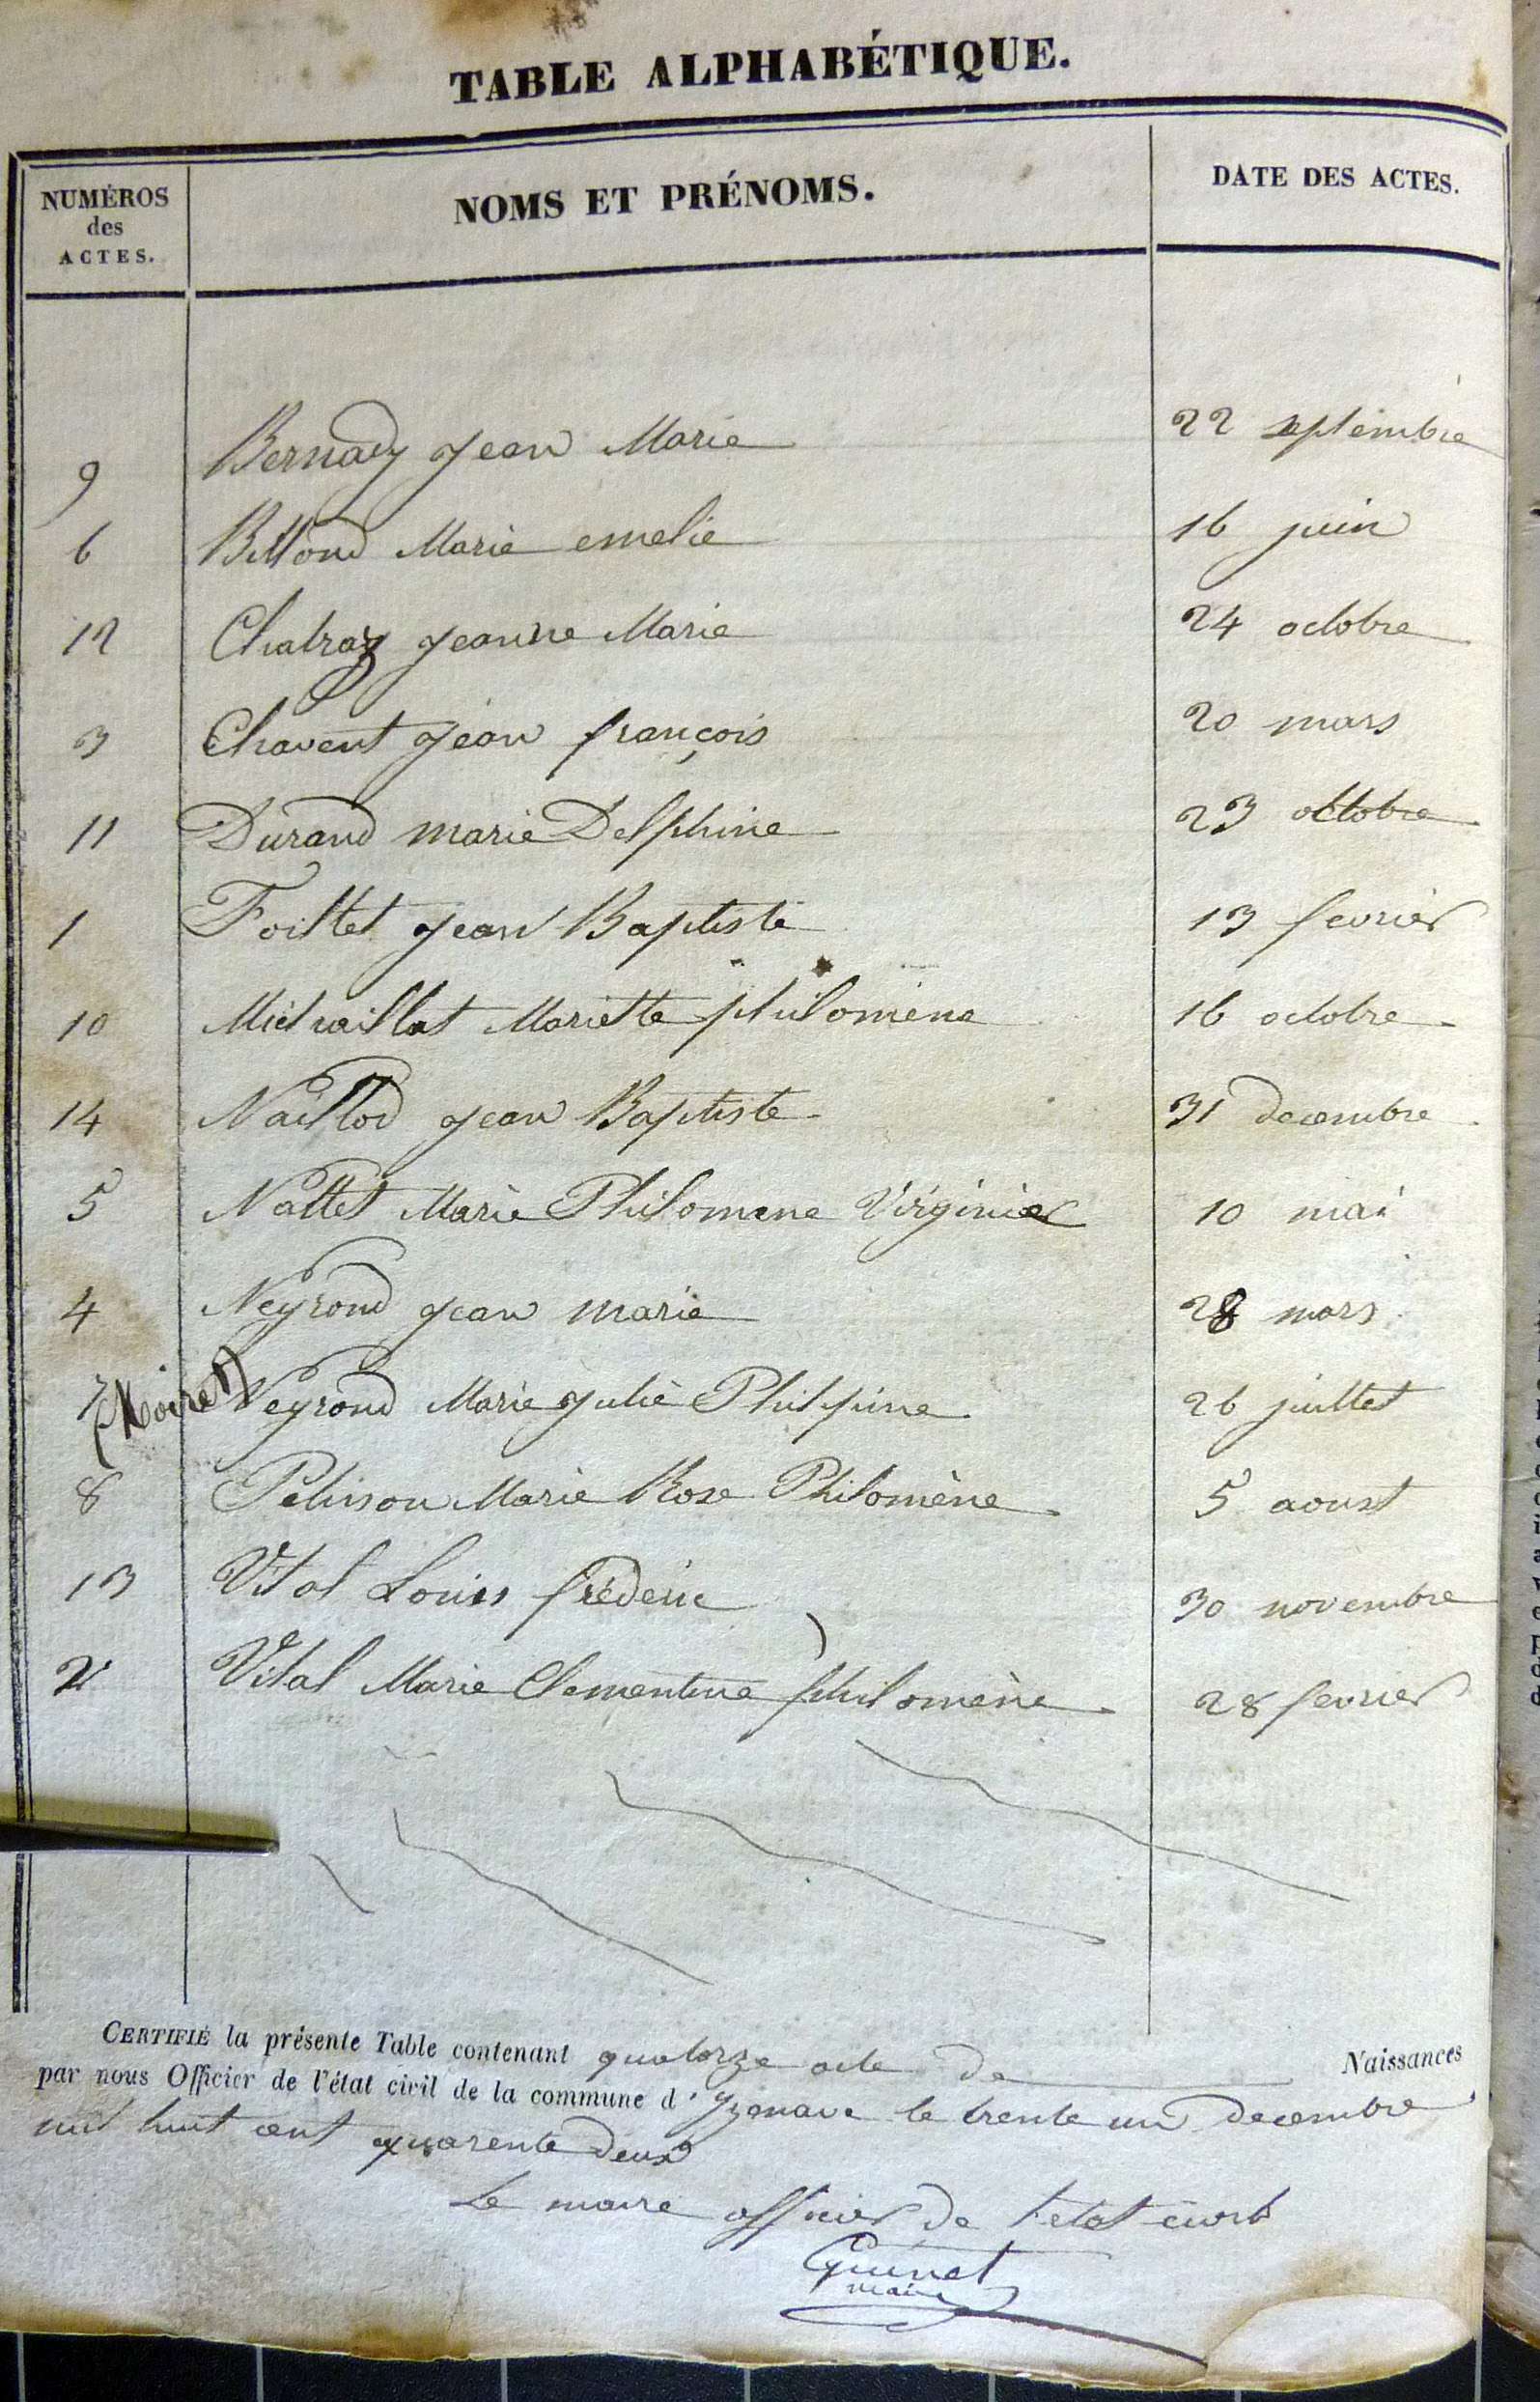 TABLE ALPHABÉTIQUE.
NUMÉROS
des
ACTES.
NOMS ET PRÉNOMS.
DATE DES ACTES.
9 Bernady Jean Marie 22 septembre
6 Billond Marie emelie 16 juin
12 Chatraz Jeanne Marie 24 octobre
3 Chavent Jean françois 20 mars
11 Durand marie Delphine 23 octobre
1 Foillet Jean Baptiste 13 fevrier
10 Michaillat Mariette philomène 16 octobre
14 Naillod Jean Baptiste 31 decembre
5 Nallet Marie Philomene Virginie 10 mai
4 Neyrond Jean marie 28 mars
7 (Moiret) Neyrond Marie Julie Philpine 26 juillet
8 Pelisson Marie Rose Philomène 5 aoust
13 Vital Louis frédéric 30 novembre
2 Vital Marie Clementine philomène 28 fevrier
CERTIFIÉ la présente Table contenant quatorze acte de Naissances
par nous Officier de l'état civil de la commune d'Izenave le trente un decembre
mil huit cent quarente deux
Le maire officier de l'etat civil
Guinet
maire